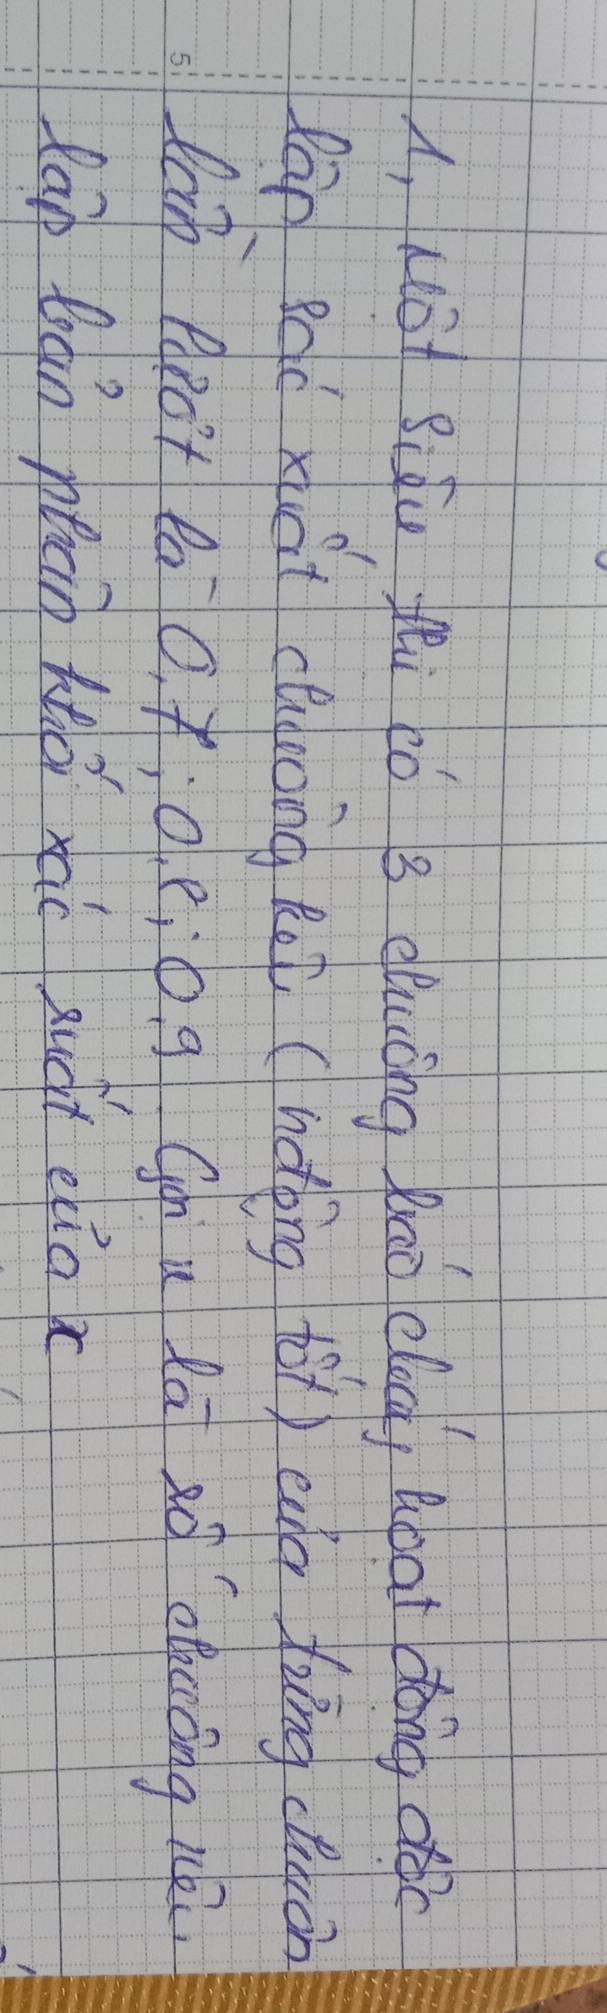 1, Một siêu thị có 3 chuông báo cháy hoạt động độc
lập xác xuất chuông kêu (hđộng tốt) của từng chuôn
lần lượt là 0,7; 0,8; 0,9 Gọi x là số chuông kêu
lập bản phân khối xác suất của x
5